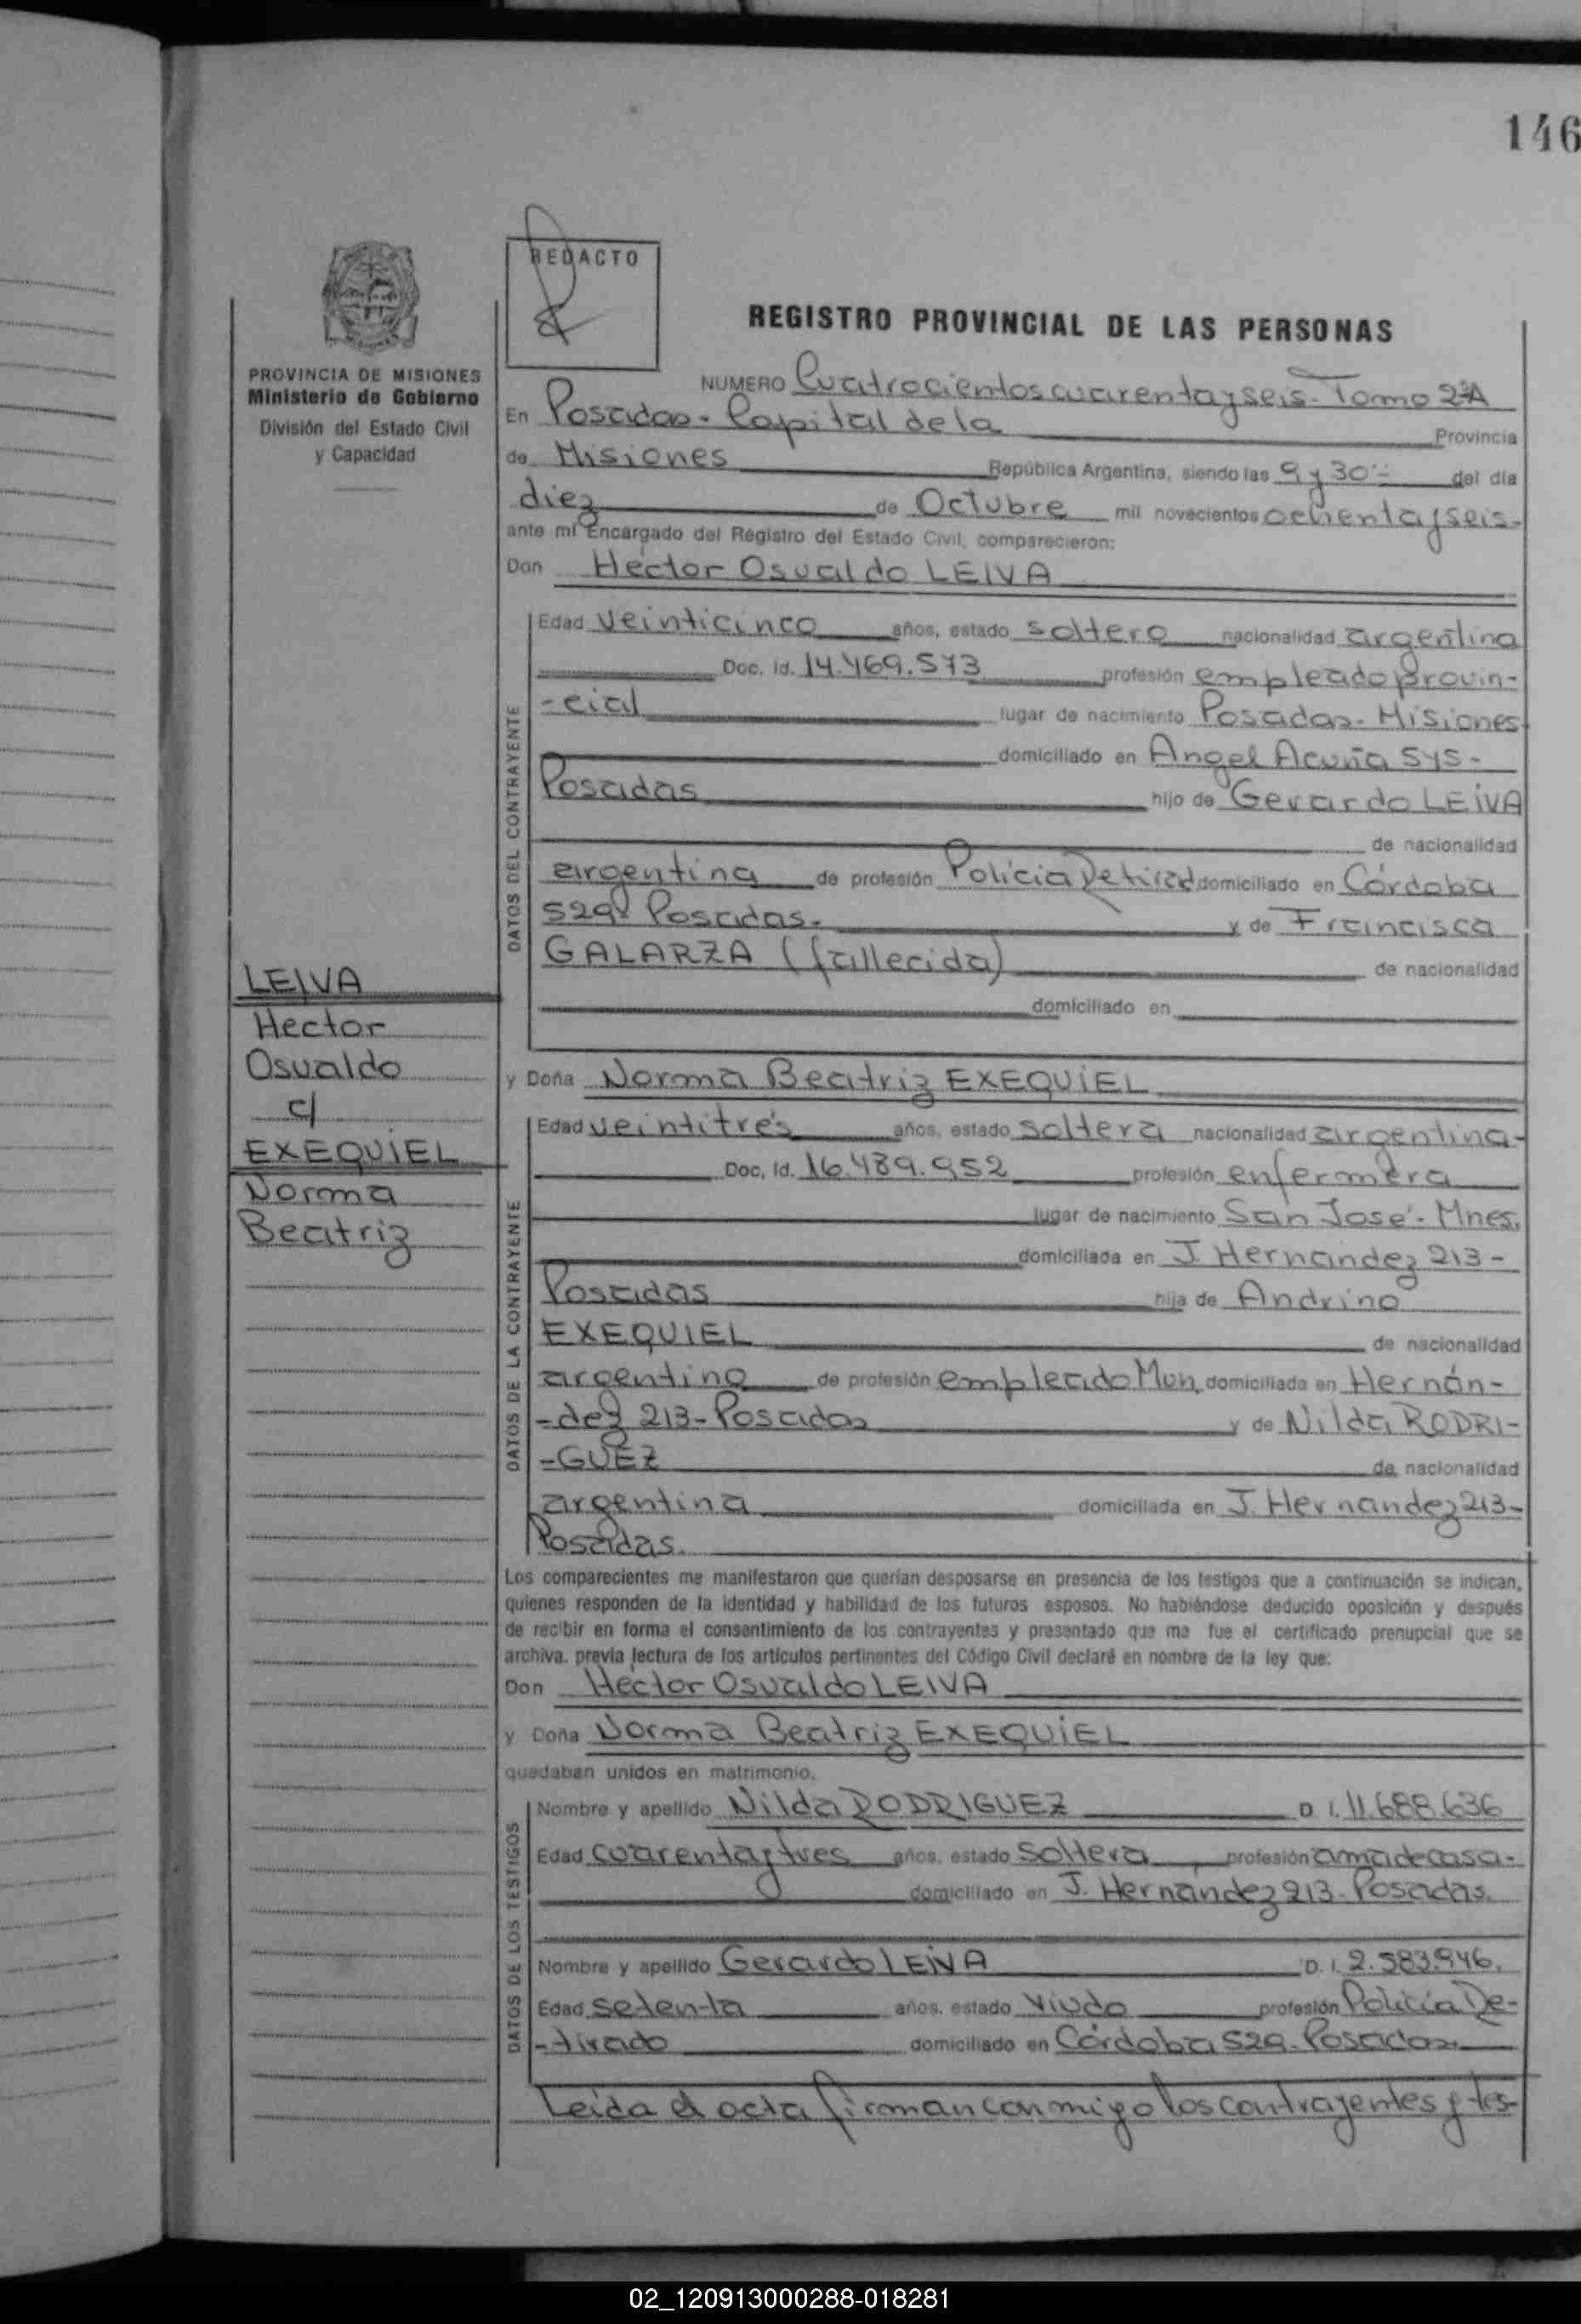 146
REDACTO
REGISTRO PROVINCIAL DE LAS PERSONAS
PROVINCIA DE MISIONES
Ministerio de Gobierno
División del Estado Civil
y Capacidad
NUMERO Cuatrocientos cuarenta y seis - Tomo 2ºA
En Posadas - Capital de la Provincia
de Misiones República Argentina, siendo las 9 y 30 - del día
diez de Octubre mil novecientos ochenta y seis -
ante mí Encargado del Registro del Estado Civil, comparecieron:
Don Hector Osvaldo LEIVA
DATOS DEL CONTRAYENTE
Edad veinticinco años, estado soltero nacionalidad argentina
Doc. Id. 14.469.573 profesión empleado provin-
-cial lugar de nacimiento Posadas - Misiones
domiciliado en Angel Acuña
Posadas hijo de Gerardo LEIVA
de nacionalidad
argentina de profesión Policia domiciliado en Córdoba
529 Posadas - y de Francisca
GALARZA (fallecida) de nacionalidad
domiciliado en
LEIVA
Hector
Osvaldo
c/
EXEQUIEL
Norma
Beatriz
y Doña Norma Beatriz EXEQUIEL
DATOS DE LA CONTRAYENTE
Edad veintitrés años, estado soltera nacionalidad argentina -
Doc. Id. 16.489.952 profesión enfermera
lugar de nacimiento San José - Mnes.
domiciliada en J. Hernandez 213 -
Posadas hija de Andrino
EXEQUIEL de nacionalidad
argentino de profesión empleado Mun. domiciliada en Hernán-
-dez 213 - Posadas y de Nilda RODRI-
-GUEZ de nacionalidad
argentina domiciliada en J. Hernandez 213 -
Posadas.
Los comparecientes me manifestaron que querían desposarse en presencia de los testigos que a continuación se indican,
quienes responden de la identidad y habilidad de los futuros esposos. No habiéndose deducido oposición y después
de recibir en forma el consentimiento de los contrayentes y presentado que me fue el certificado prenupcial que se
archiva. previa lectura de los artículos pertinentes del Código Civil declaré en nombre de la ley que:
Don Hector Osvaldo LEIVA
y Doña Norma Beatriz EXEQUIEL
quedaban unidos en matrimonio.
DATOS DE LOS TESTIGOS
Nombre y apellido Nilda RODRIGUEZ D. I. 11.688.636
Edad cuarenta y tres años, estado soltera profesión ama de casa -
domiciliado en J. Hernandez 213 - Posadas.
Nombre y apellido Gerardo LEIVA D. I. 2.583.946.
Edad setenta años. estado viudo profesión Policia Re-
-tirado domiciliado en Córdoba 529 - Posadas
Leida el acta firman conmigo los contrayentes y tes-
02_120913000288-018281